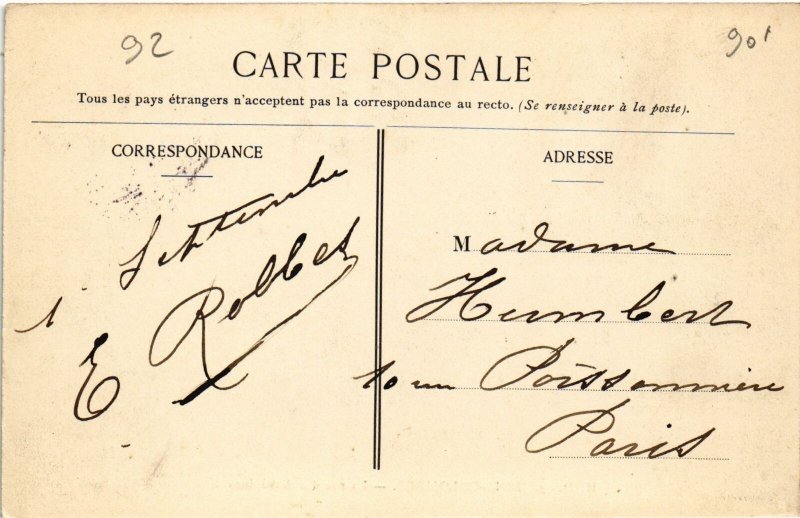 92
90'
CARTE POSTALE
Tous les pays étrangers n'acceptent pas la correspondance au recto. (Se renseigner à la poste).
CORRESPONDANCE
1 Septembre
E Robbes
ADRESSE
Madame
Humbert
10 Poissonnière
Paris